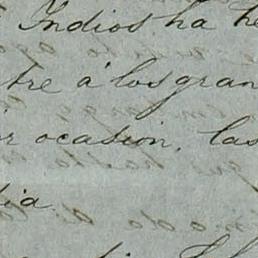 Indios ha he
tre á los gran
ocasion, las
dia